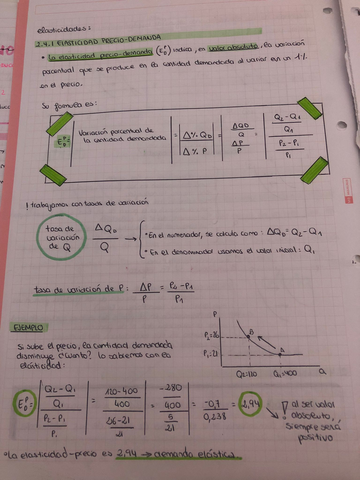 elasticidades:
2.4.1 ELASTICIDAD PRECIO-DEMANDA
• La elasticidad precio-demanda (E_D^P) indica, en valor absoluto, la variación
porcentual que se produce en la cantidad demandada al variar en un 1%
en el precio.
Su fórmula es:
E_D^P = | Variación porcentual de la cantidad demandada | = | Δ% Q_D / Δ% P | = | (ΔQD / Q) / (ΔP / P) | = | ((Q2 - Q1) / Q1) / ((P2 - P1) / P1) |
! trabajamos con tasas de variación
tasa de variación de Q
ΔQ_D / Q →
• En el numerador, se calcula como: ΔQ_D = Q2 - Q1
• En el denominador usamos el valor inicial: Q1
tasa de variación de P: ΔP / P = (P2 - P1) / P1
EJEMPLO
Si sube el precio, la cantidad demandada
disminuye ¿cuánto? lo sabemos con la
elasticidad:
P
P2=26
B
P1=21
A
Q2=120
Q1=400
Q
E_D^P = | ((Q2 - Q1) / Q1) / ((P2 - P1) / P1) | = | ((120-400) / 400) / ((26-21) / 21) | = | (-280 / 400) / (5 / 21) | = | -0,7 / 0,238 | = 2,94
¡al ser valor
absoluto,
siempre será
positivo
• La elasticidad-precio es 2,94 → demanda elástica